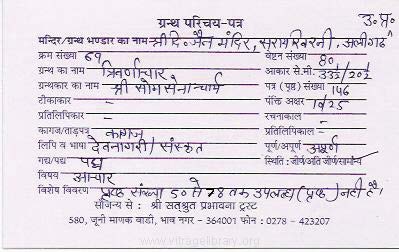 उ. प्र.
ग्रन्थ परिचय-पत्र
मन्दिर/ग्रन्थ भण्डार का नाम श्री दि. जैन मंदिर, सराय खिरनी, अलीगढ
क्रम संख्या 69 वेष्टन संख्या 80
ग्रन्थ का नाम त्रिवर्णाचार आकार से.मी. 33½/20½
ग्रन्थकार का नाम श्री सोमसेनाचार्य पत्र (पृष्ठ) संख्या 146
टीकाकार - पंक्ति अक्षर 10/25
प्रतिलिपिकार - रचनाकाल -
कागज/ताड़पत्र कागज प्रतिलिपिकाल -
लिपि व भाषा देवनागरी/संस्कृत पूर्ण/अपूर्ण अपूर्ण
गद्य/पद्य पद्य स्थिति : जीर्ण/अति जीर्ण/सामान्य
विषय आचार
विशेष विवरण पृष्ठ संख्या 50 से 78 तक उपलब्ध (पृष्ठ) नहीं है।
सौजन्य से : श्री सतश्रुत प्रभावना ट्रस्ट
580, जूनी माणक वाडी, भाव नगर - 364001 फोन : 0278 - 423207
www.vitragelibrary.org